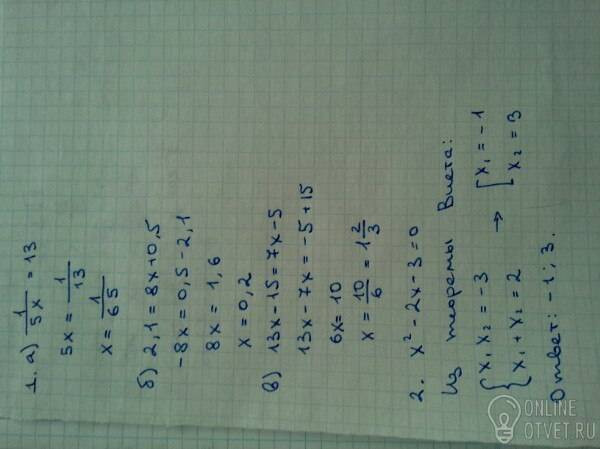 1. а) 1/5x = 13
5x = 1/13
x = 1/65
б) 2,1 = 8x + 0,5
-8x = 0,5 - 2,1
8x = 1,6
x = 0,2
в) 13x - 15 = 7x - 5
13x - 7x = -5 + 15
6x = 10
x = 10/6 = 1 2/3
2. x² - 2x - 3 = 0
Из теоремы Виета:
{ x₁x₂ = -3 → [ x₁ = -1
{ x₁ + x₂ = 2 [ x₂ = 3
Ответ: -1; 3.
ONLINE
OTVET.RU